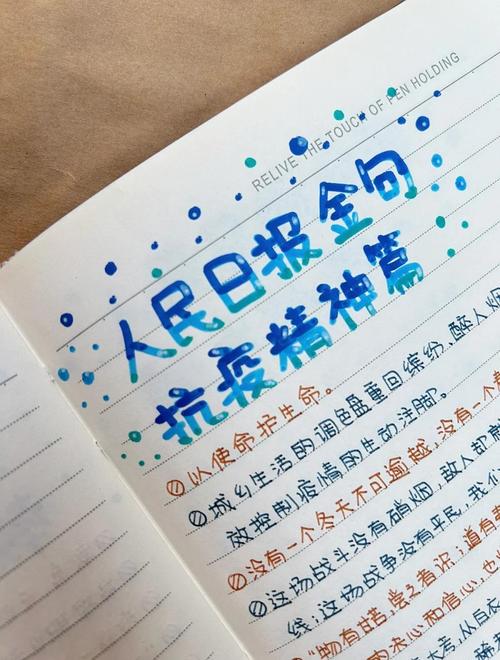 RELIVE THE TOUCH OF PEN HOLDING
人民日报金句
抗疫精神篇
以使命护生命。
城乡生活的调色盘重回缤纷,醉人烟
是控制疫情的生动注脚。
没有一个冬天不可逾越,没有一个春
这场战斗没有硝烟,敌人却
线;这场战争没有平民,我们
"物有甘苦,尝之者识;道有
的决心和信心,也
大考,从白衣